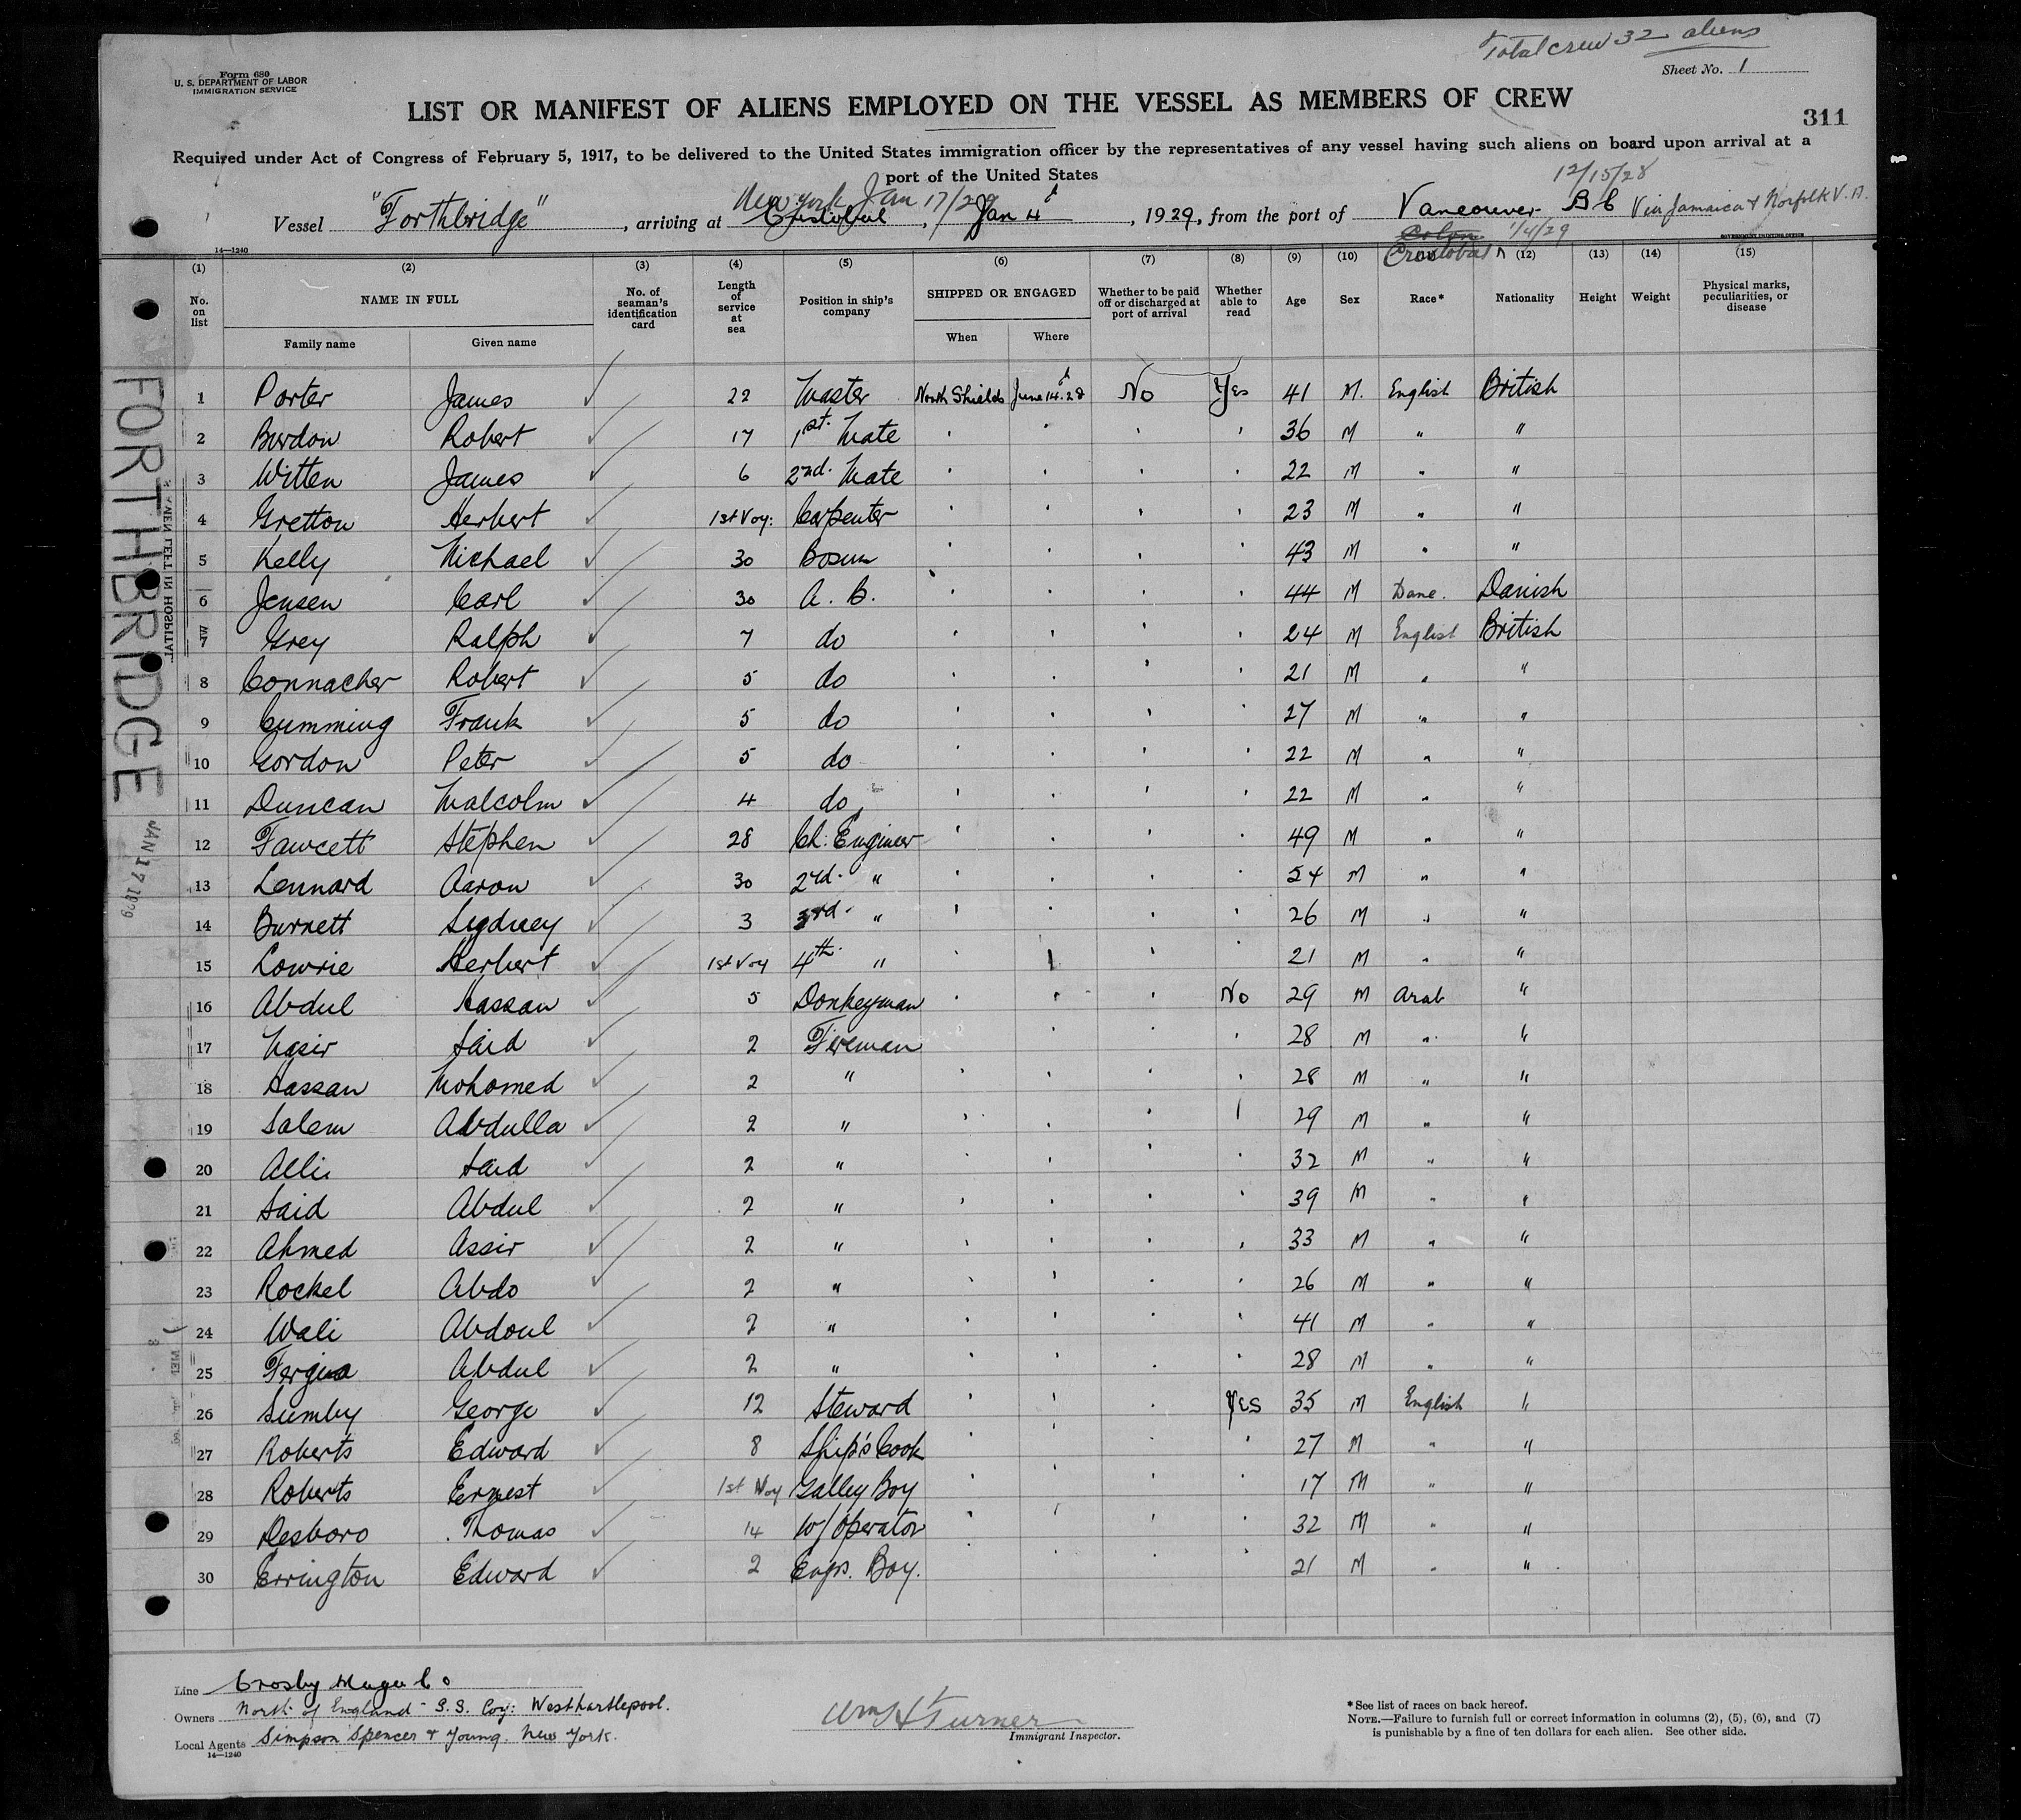 Total crew 32 aliens
Form 680
U. S. DEPARTMENT OF LABOR
IMMIGRATION SERVICE
Sheet No. 1
LIST OR MANIFEST OF ALIENS EMPLOYED ON THE VESSEL AS MEMBERS OF CREW
311
Required under Act of Congress of February 5, 1917, to be delivered to the United States immigration officer by the representatives of any vessel having such aliens on board upon arrival at a
port of the United States
12/15/28
New York Jan 17/29
Vessel "Forthbridge", arriving at Cristobal, Jan 4th, 1929, from the port of Vancouver B C Via Jamaica & Norfolk V.A.
Colon 1/4/29
Cristobal
14—1240
GOVERNMENT PRINTING OFFICE
(1) (2) (3) (4) (5) (6) (7) (8) (9) (10) (12) (13) (14) (15)
No. on list NAME IN FULL No. of seaman's identification card Length of service at sea Position in ship's company SHIPPED OR ENGAGED Whether to be paid off or discharged at port of arrival Whether able to read Age Sex Race* Nationality Height Weight Physical marks, peculiarities, or disease
Family name Given name When Where
1 Porter James 22 Master North Shields June 14th 28 No Yes 41 M. English British
2 Burdon Robert 17 1st. Mate ' ' ' ' 36 M " "
3 Witten James 6 2nd. Mate ' ' ' ' 22 M " "
4 Gretton Herbert 1st Voy: Carpenter ' ' ' ' 23 M " "
5 Kelly Michael 30 Bosun ' ' ' ' 43 M " "
6 Jensen Carl 30 A. B. ' ' ' ' 44 M Dane. Danish
7 Grey Ralph 7 do ' ' ' ' 24 M English British
8 Connacher Robert 5 do ' ' ' ' 21 M " "
9 Cumming Frank 5 do ' ' ' ' 27 M " "
10 Gordon Peter 5 do ' ' ' ' 22 M " "
11 Duncan Malcolm 4 do ' ' ' ' 22 M " "
12 Fawcett Stephen 28 Ch: Engineer ' ' ' ' 49 M " "
13 Lennard Aaron 30 2nd. " ' ' ' ' 54 M " "
14 Burnett Sydney 3 3rd. " ' ' ' ' 26 M " "
15 Lowrie Herbert 1st Voy 4th " ' ' ' ' 21 M " "
16 Abdul Hassan 5 Donkeyman ' ' ' No 29 M Arab "
17 Nasir Said 2 Fireman ' ' ' 28 M " "
18 Hassan Mohomed 2 " ' ' ' ' 28 M " "
19 Salem Abdulla 2 " ' ' ' ' 29 M " "
20 Alli Said 2 " ' ' ' ' 32 M " "
21 Said Abdul 2 " ' ' ' ' 39 M " "
22 Ahmed Assir 2 " ' ' ' ' 33 M " "
23 Rockel Abdo 2 " ' ' ' ' 26 M " "
24 Wali Abdoul 2 " ' ' ' ' 41 M " "
25 Abdul 2 " ' ' ' ' 28 M " "
26 Sumby George 12 Steward ' ' ' Yes 35 M English "
27 Roberts Edward 8 Ship's Cook ' ' ' ' 27 M " "
28 Roberts Ernest 1st Voy Galley Boy ' ' ' ' 17 M " "
29 Desboro Thomas 14 W/Operator ' ' ' ' 32 M " "
30 Errington Edward 2 Engs. Boy. ' ' ' ' 21 M " "
FORTHBRIDGE
JAN 17 1929
SEAMEN LEFT IN HOSPITAL
Line Crosby Magee Co
Owners North of England S.S. Coy: West Hartlepool.
Local Agents Simpson Spencer & Young. New York.
14—1240
Wm H Turner
Immigrant Inspector.
*See list of races on back hereof.
NOTE.—Failure to furnish full or correct information in columns (2), (5), (6), and (7)
is punishable by a fine of ten dollars for each alien. See other side.